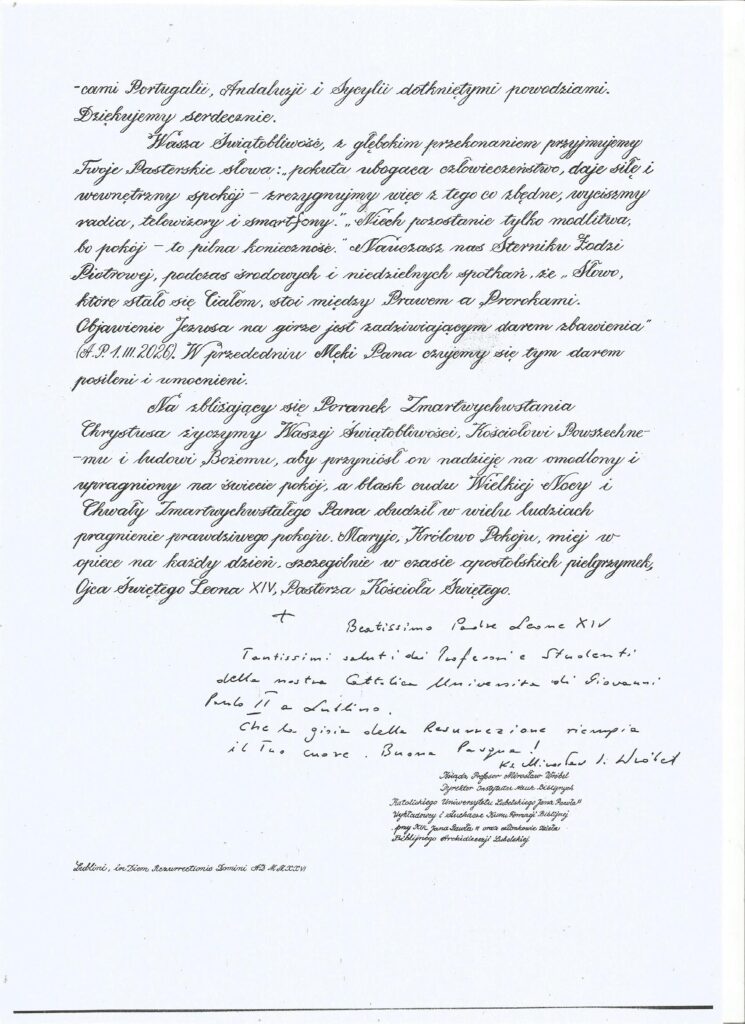 -cami Portugalii, Andaluzji i Sycylii dotkniętymi powodziami.
Dziękujemy serdecznie.
Wasza Świątobliwość, z głębokim przekonaniem przyjmujemy
Twoje Pasterskie słowa: „pokuta ubogaca człowieczeństwo, daje siłę i
wewnętrzny spokój – zrezygnujmy więc z tego co zbędne, wyciszmy
radia, telewizory i smartfony." „Niech pozostanie tylko modlitwa,
bo pokój – to pilna konieczność." Nauczasz nas Sterniku Łodzi
Piotrowej, podczas środowych i niedzielnych spotkań, że „Słowo,
które stało się Ciałem, stoi między Prawem a Prorokami.
Objawienie Jezusa na górze jest zadziwiającym darem zbawienia"
(A.P. 1. III. 2026). W przededniu Męki Pana czujemy się tym darem
posileni i umocnieni.
Na zbliżający się Poranek Zmartwychwstania
Chrystusa życzymy Waszej Świątobliwości, Kościołowi Powszechne-
-mu i ludowi Bożemu, aby przyniósł on nadzieję na omodlony i
upragniony na świecie pokój, a blask cudu Wielkiej Nocy i
Chwały Zmartwychwstałego Pana obudził w wielu ludziach
pragnienie prawdziwego pokoju. Maryjo, Królowo Pokoju, miej w
opiece na każdy dzień, szczególnie w czasie apostolskich pielgrzymek,
Ojca Świętego Leona XIV, Pasterza Kościoła Świętego.
+
Beatissimo Padre Leone XIV
Tantissimi saluti dai Professori e Studenti
della nostra Cattolica Universita di Giovanni
Paolo II a Lublino.
Che la gioia della Resurrezione riempia
il Tuo cuore. Buona Pasqua!
Ks. Mirosław S. Wróbel
Ksiądz Profesor Mirosław Wróbel
Dyrektor Instytutu Nauk Biblijnych
Katolickiego Uniwersytetu Lubelskiego Jana Pawła II
Wykładowcy i Słuchacze Kursu Formacji Biblijnej
przy KUL Jana Pawła II oraz członkowie Dzieła
Biblijnego Archidiecezji Lubelskiej
Lublini, in Diem Resurrectionis Domini AD MMXXVI